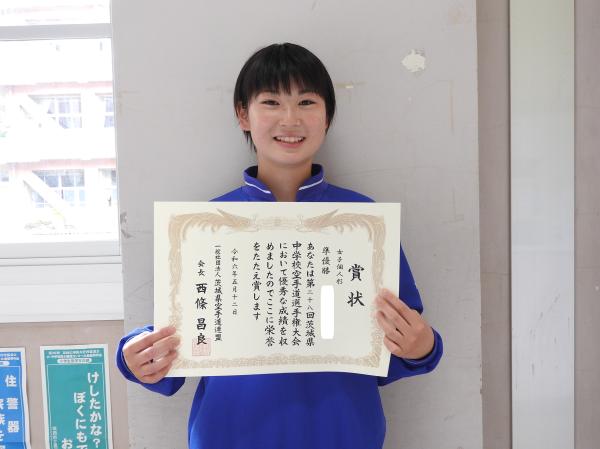 賞状
女子個人形
準優勝
あなたは第二十八回茨城県
中学校空手道選手権大会
において優秀な成績を収
めましたのでここに栄誉
をたたえ賞します
令和六年五月十二日
一般社団法人茨城県空手道連盟
会長 西條昌良
住警器
けしたかな?
ぼくにもで
お